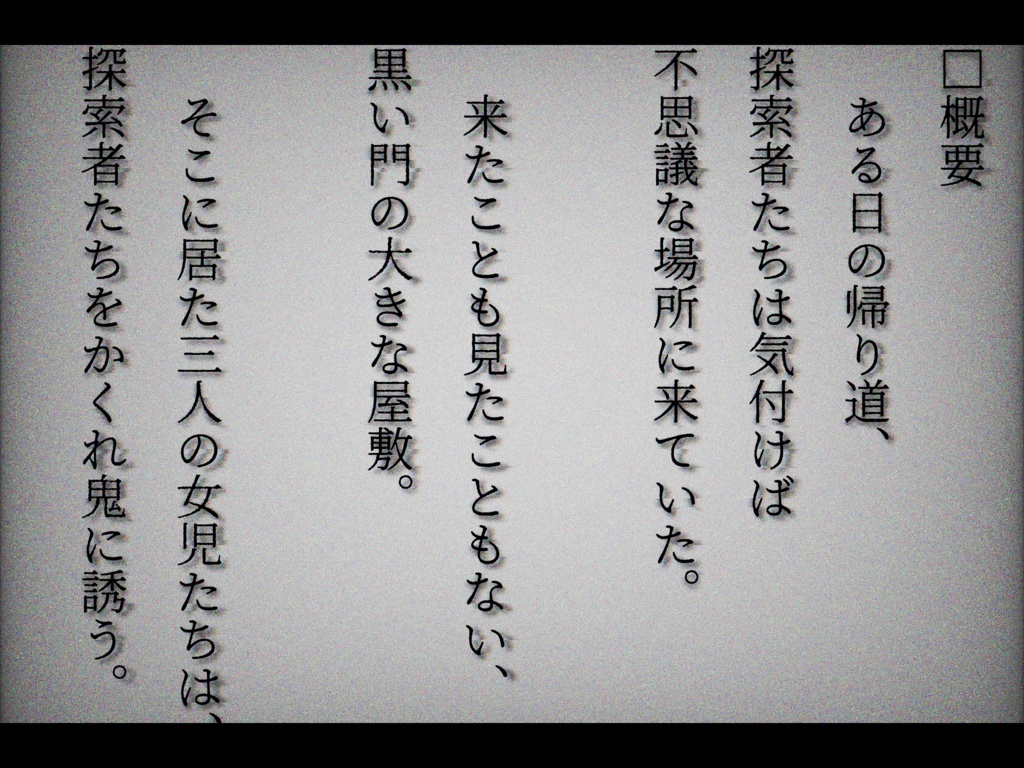 □概要
ある日の帰り道、
探索者たちは気付けば
不思議な場所に来ていた。
来たことも見たこともない、
黒い門の大きな屋敷。
そこに居た三人の女児たちは、
探索者たちをかくれ鬼に誘う。